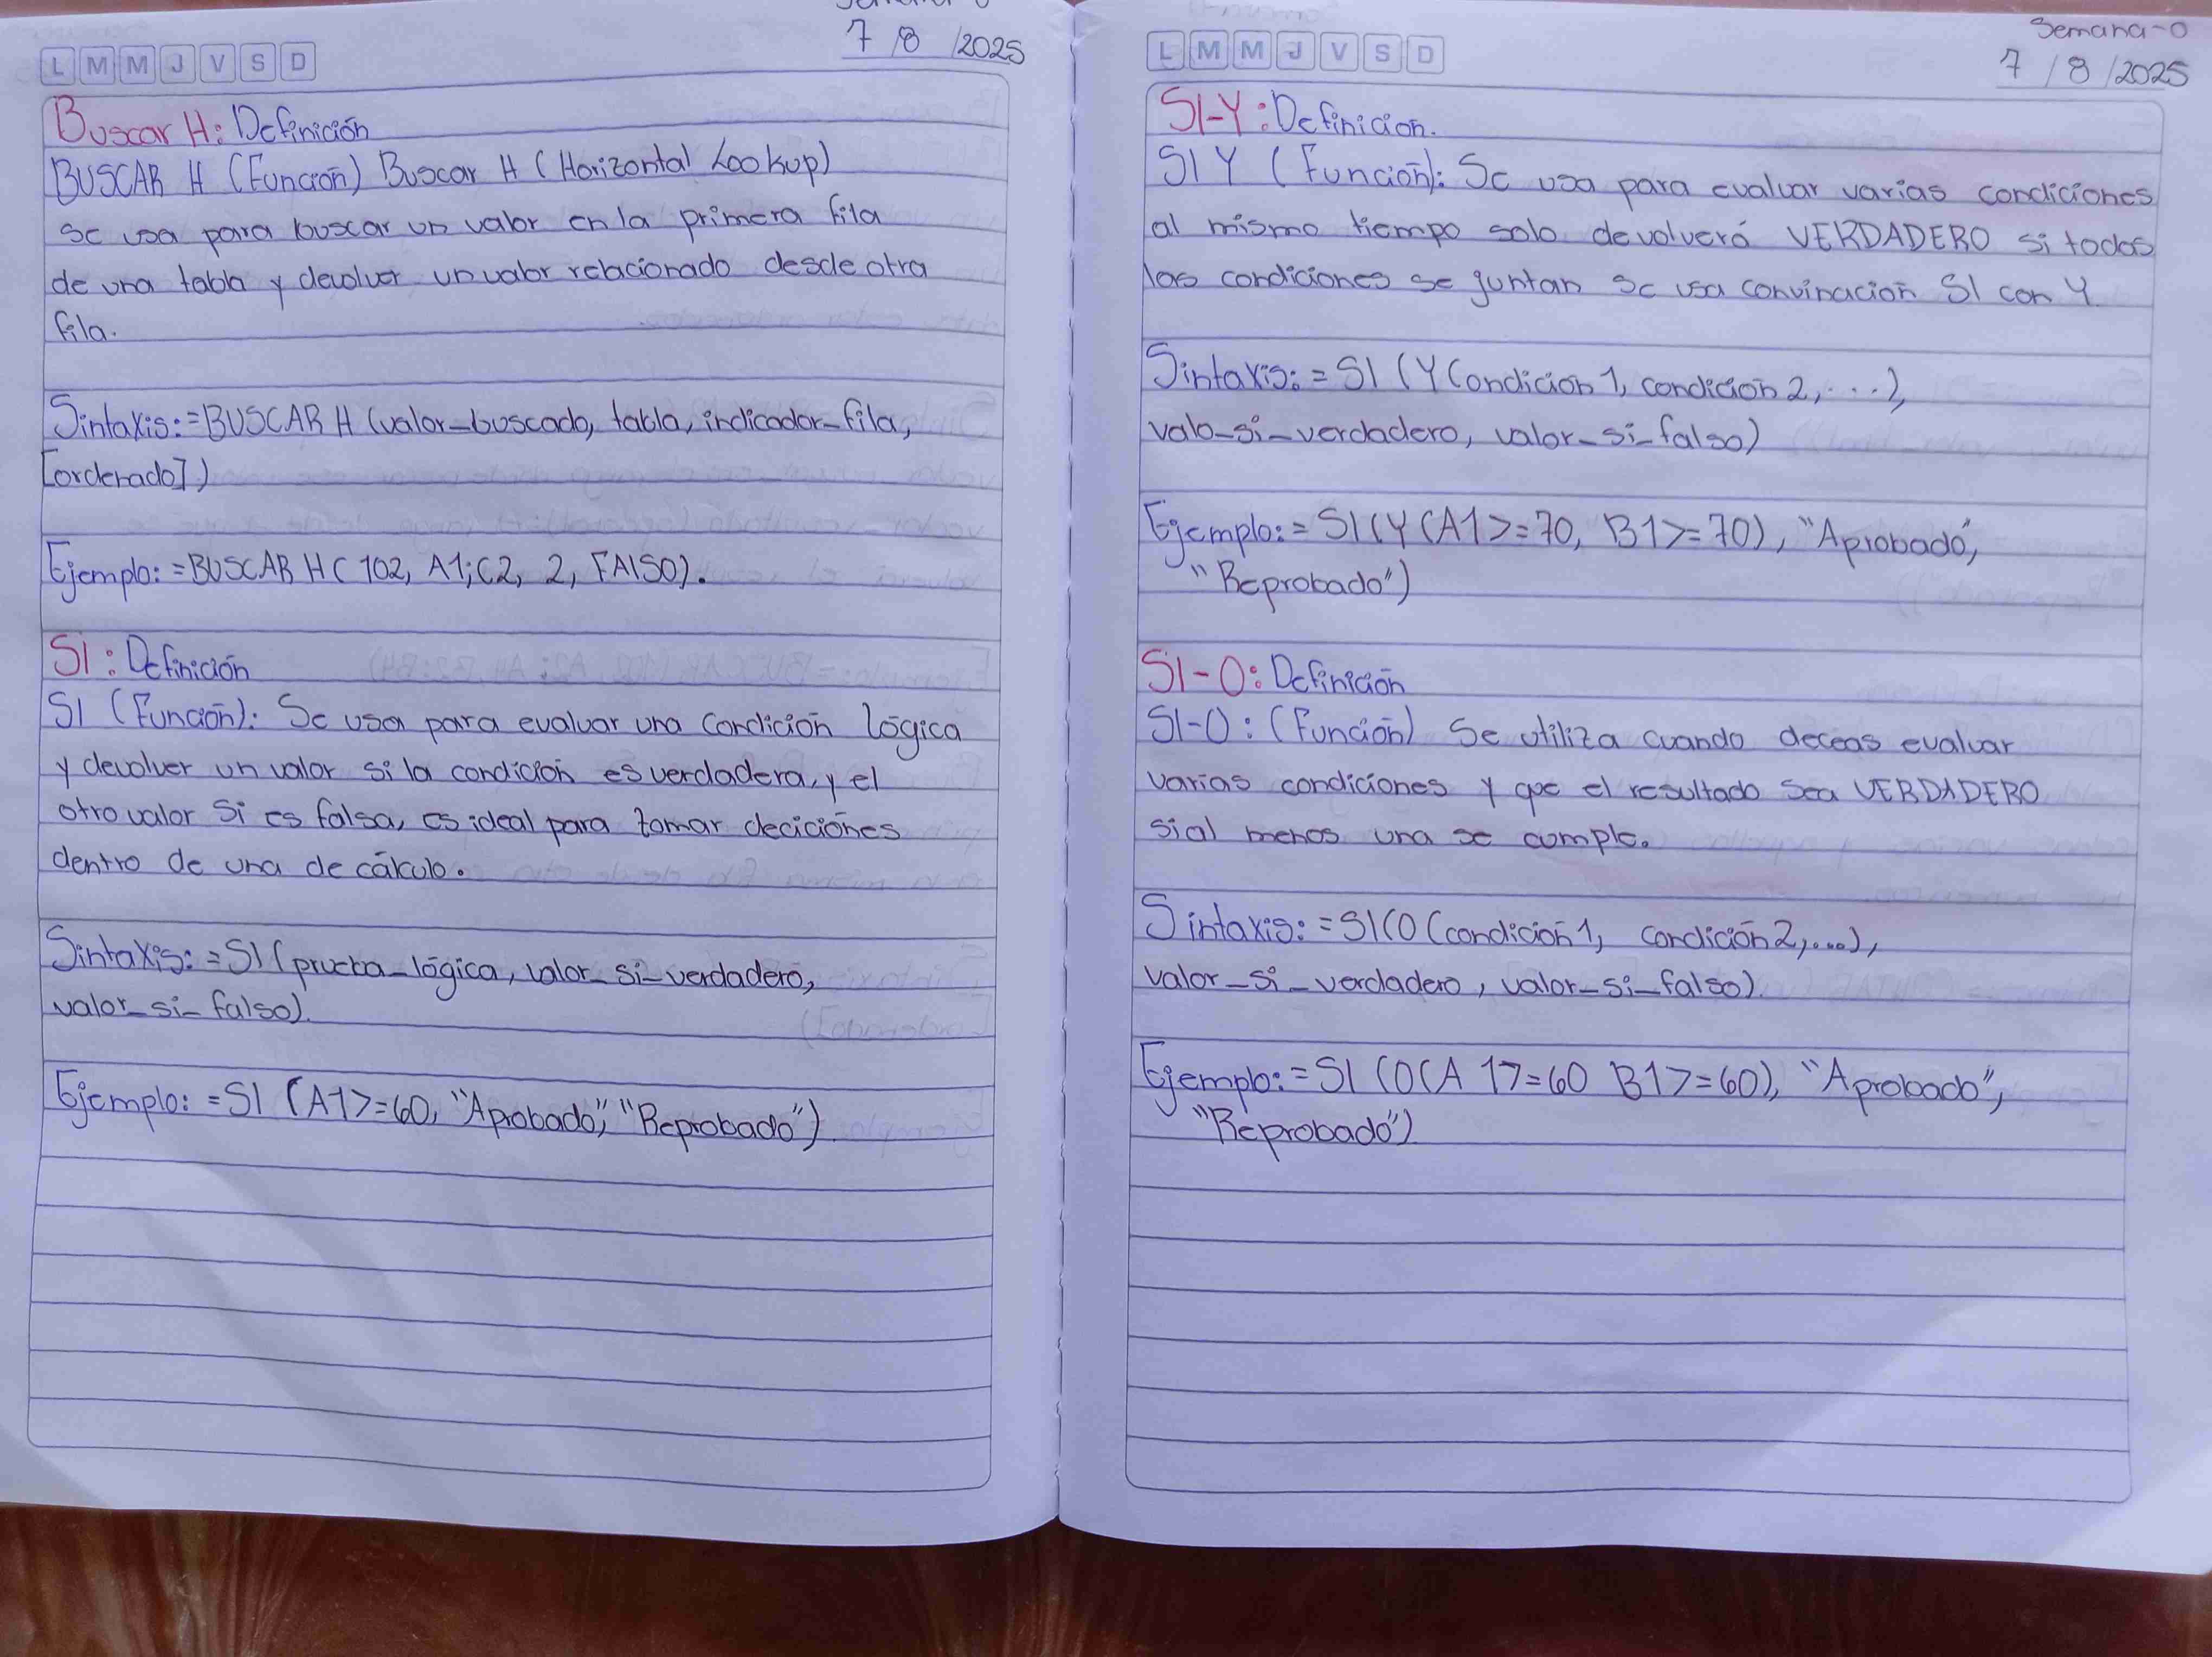 Semana-0
7/8/2025
L M M J V S D
Buscar H: Definición
BUSCAR H (Función) Buscar H (Horizontal Lookup)
se usa para buscar un valor en la primera fila
de una tabla y devolver un valor relacionado desde otra
fila.
Sintaxis: =BUSCAR H (valor_buscado, tabla, indicador_fila,
[ordenado])
Ejemplo: =BUSCAR H( 102, A1;C2, 2, FAlSO).
SI: Definición
SI (Función): Se usa para evaluar una condición lógica
y devolver un valor si la condición es verdadera, y el
otro valor si es falsa, es ideal para tomar deciciones
dentro de una de cálculo.
Sintaxis: =SI (prueba_lógica, valor_si_verdadero,
valor_si_falso).
Ejemplo: =SI (A1>=60, "Aprobado", "Reprobado").
Semana-0
7/8/2025
L M M J V S D
SI-Y: Definicion.
SI Y (Función): Se usa para evaluar varias condiciones
al mismo tiempo solo devolverá VERDADERO si todas
las condiciones se juntan se usa convinación SI con Y.
Sintaxis: =SI (Y Condición 1, condición 2, ...),
valo_si_verdadero, valor_si_falso)
Ejemplo: =SI(Y (A1>=70, B1>=70), "Aprobado",
"Reprobado")
SI-O: Definición
SI-O: (Función) Se utiliza cuando deceas evaluar
varias condiciones y que el resultado sea VERDADERO
si al menos una se cumple.
Sintaxis: =SI(O (condición 1, condición 2,....),
valor_si_verdadero, valor_si_falso).
Ejemplo: =SI (O(A 1>=60 B1>=60), "Aprobado",
"Reprobado")